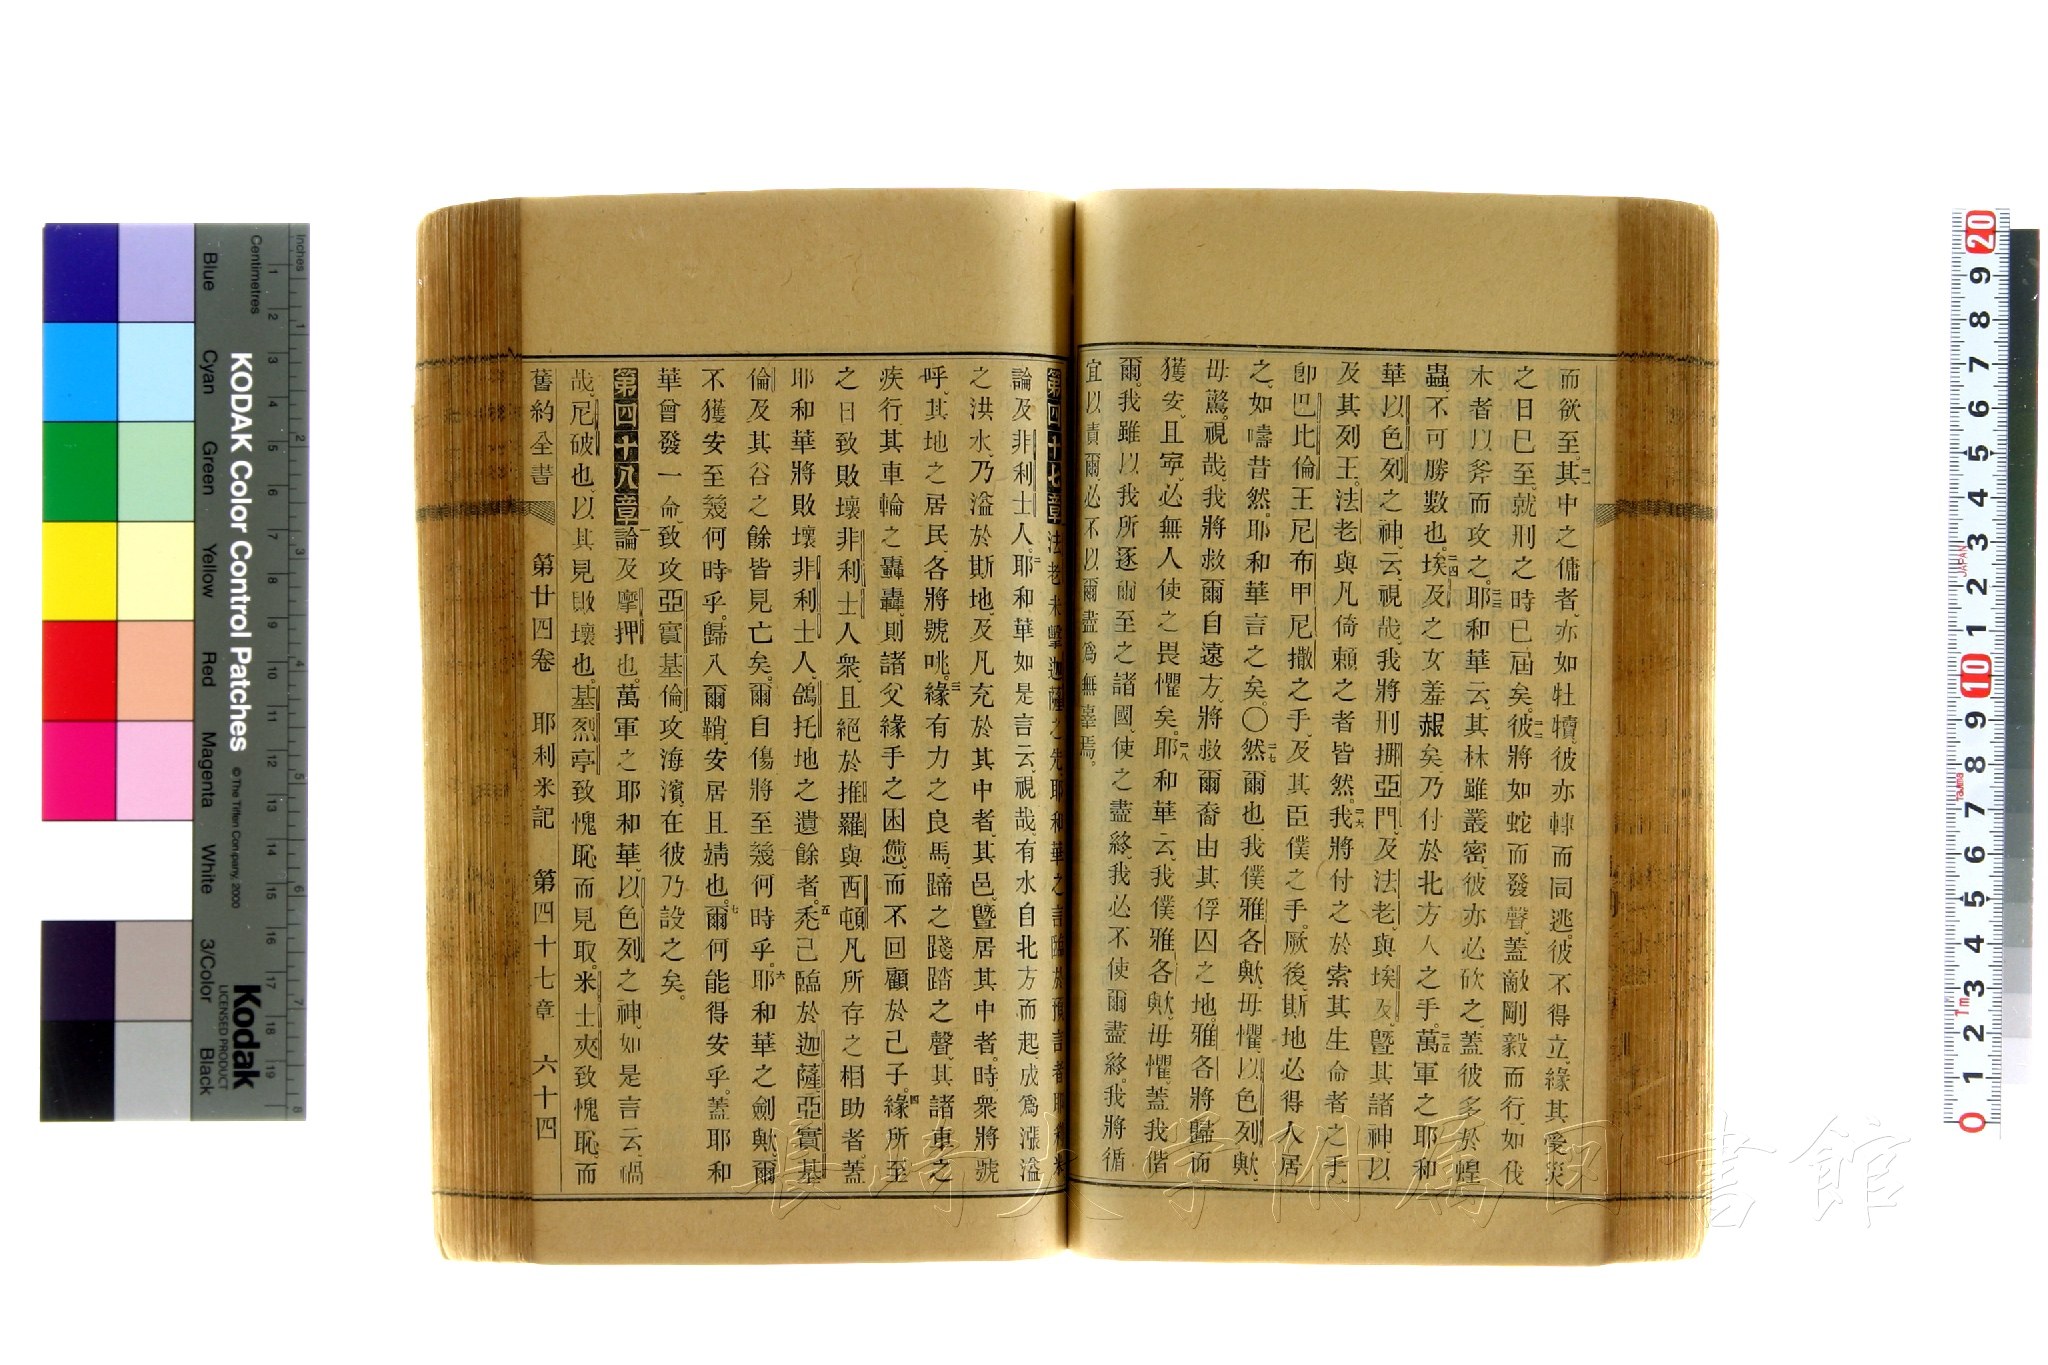 而欲至。其中之傭者、亦如牡犢。彼亦轉而同逃。彼不得立、緣其受災
之日已至、就刑之時已屆矣。彼將如蛇而發聲、蓋敵剛毅而行、如伐
木者以斧而攻之。耶和華云、其林雖叢密、彼亦必砍之、蓋彼多於蝗
蟲、不可勝數也。埃及之女羞赧矣、乃付於北方人之手。萬軍之耶和
華以色列之神、云、視哉、我將刑挪亞門、及法老、與埃及、曁其諸神、以
及其列王。法老與凡倚賴之者皆然。我將付之於索其生命者之手、
卽巴比倫王尼布甲尼撒之手、及其臣僕之手。厥後、斯地必得人居
之、如疇昔然。耶和華言之矣。〇然爾也、我僕雅各歟、毋懼、以色列歟、
毋驚。視哉、我將救爾自遠方、將救爾裔由其俘囚之地。雅各將歸而
獲安、且寧、必無人使之畏懼矣。耶和華云、我僕雅各歟、毋懼、蓋我偕
爾。我雖以我所逐爾至之諸國、使之盡終、我必不使爾盡終。我將循
宜以責爾、必不以爾盡爲無辜焉。
第四十七章 法老未擊迦薩之先、耶和華之言臨於預言者耶利米
論及非利士人。耶和華如是言云、視哉、有水自北方而起、成爲漲溢
之洪水、乃溢於斯地、及凡充於其中者、其邑、曁居其中者。時衆將號
呼、其地之居民、各將號咷。緣有力之良馬蹄之踐踏之聲、其諸車之
疾行、其車輪之轟轟、則諸父緣手之困憊、而不回顧於己子。緣所至
之日、致敗壞非利士人衆、且絕於推羅與西頓凡所存之相助者、蓋
耶和華將敗壞非利士人、鴿托地之遺餘者。禿已臨於迦薩、亞實基
倫及其谷之餘皆見亡矣。爾自傷將至幾何時乎。耶和華之劍歟、爾
不獲安至幾何時乎。歸入爾鞘、安居且靖也。爾何能得安乎。蓋耶和
華曾發一命、致攻亞實基倫、攻海濱、在彼乃設之矣。
第四十八章 論及摩押也。萬軍之耶和華、以色列之神、如是言云、禍
哉、尼破也、以其見敗壞也。基烈亭致愧恥而見取。米士夾致愧恥、而
舊約全書 第廿四卷 耶利米記 第四十七章 六十四
長崎大学附属図書館
Inches
Centimetres
Blue Cyan Green Yellow Red Magenta White 3/Color Black
KODAK Color Control Patches ©The Tiffen Company, 2000
Kodak
LICENSED PRODUCT
JAPAN
Tajima
1m